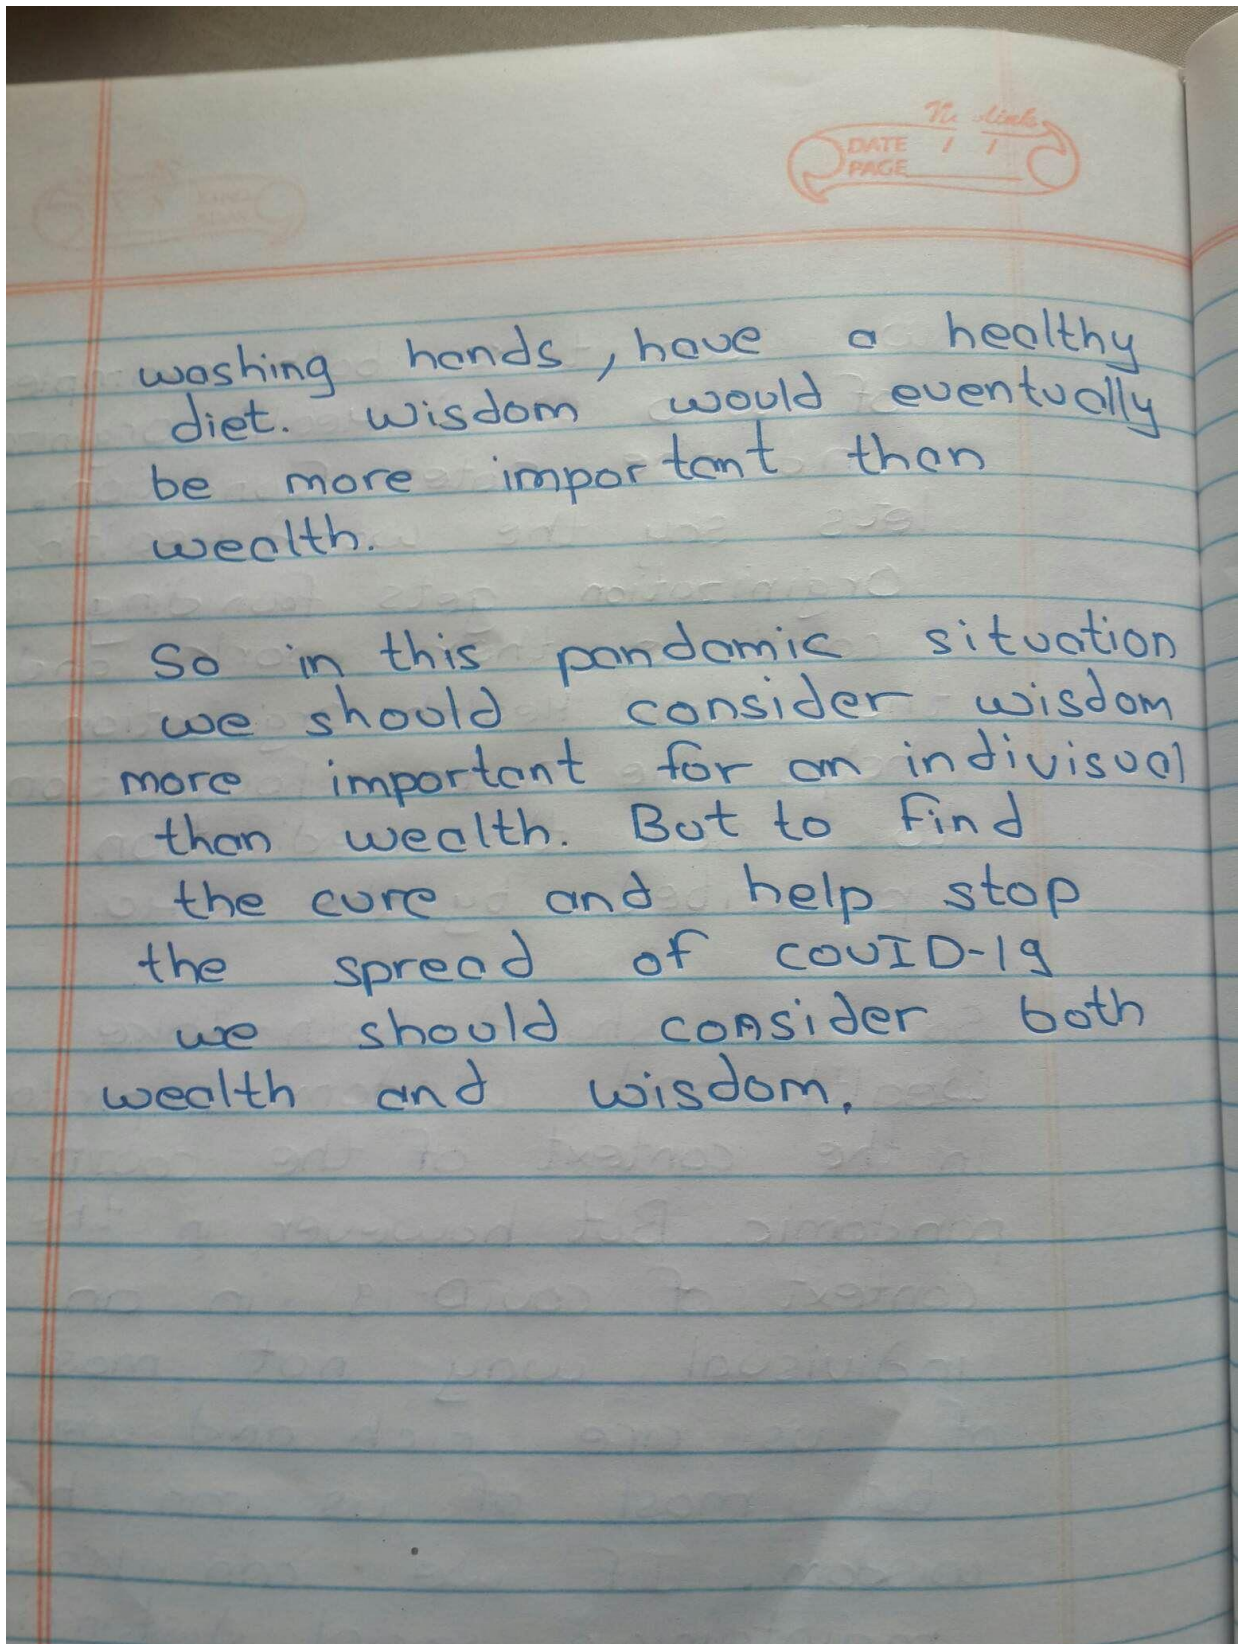 DATE / /
PAGE
washing hands, have a healthy
diet. wisdom would eventually
be more important than
wealth.
So in this pandamic situation
we should consider wisdom
more important for an indivisual
than wealth. But to find
the cure and help stop
the spread of COVID-19
we should consider both
wealth and wisdom.